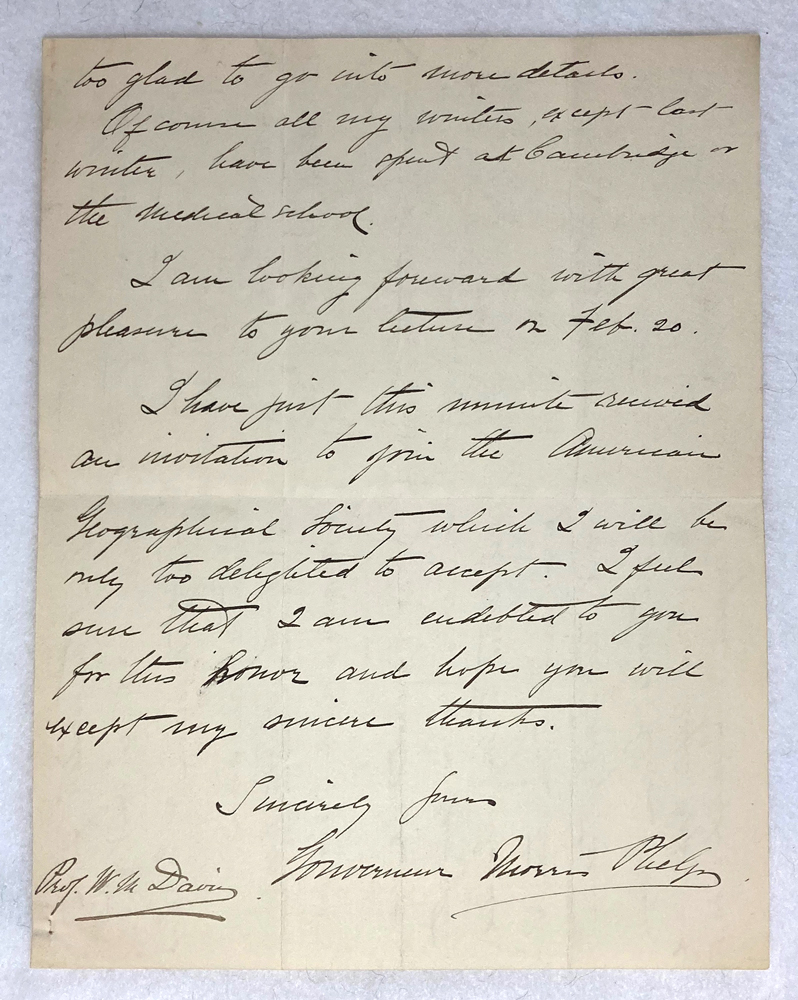 too glad to go into more details.
Of course all my winters, except last
winter, have been spent at Cambridge or
the Medical School.
I am looking forward with great
pleasure to your lecture on Feb. 20.
I have just this minute received
an invitation to join the American
Geographical Society which I will be
only too delighted to accept. I feel
sure that I am endebted to you
for this honor and hope you will
except my sincere thanks.
Sincerely yours
Gouverneur Morris Phelps
Prof. W. M. Davis.